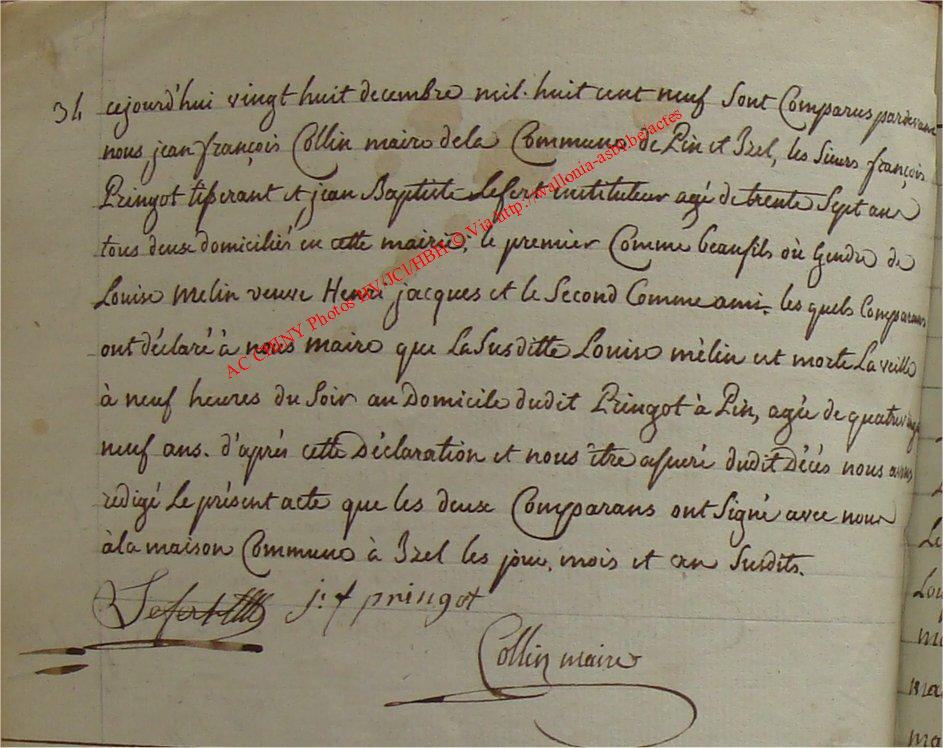 34 cejourd'hui vingt huit decembre mil huit cent neuf sont Comparus pardevant
nous jean françois Collin maire dela Commune de Pin et Izel, les Sieurs françois
Pringot tisserant et jean Baptiste Lefert instituteur agé de trente Sept ans
tous deux domiciliés en cette mairie; le premier Comme beaufils où Gendre de
Louise Melin veuve Henri jacques et le Second Comme ami. les quels Comparans
ont déclaré à nous maire que La Susditte Louise mèlin est morte La veille
à neuf heures du Soir au Domicile dudit Pringot à Pin, agée de quatrevingt
neuf ans. d'après cette Déclaration et nous être assuré dudit Décés nous avons
redigé Le présent acte que les deux Comparans ont Signé avec nous
àla maison Commune à Izel les jour, mois et an Susdits.
Lefert j. f pringot
Collin maire
AC CHINY Photos HV/JCl/HBH © Via http://wallonia-asbl.be/actes